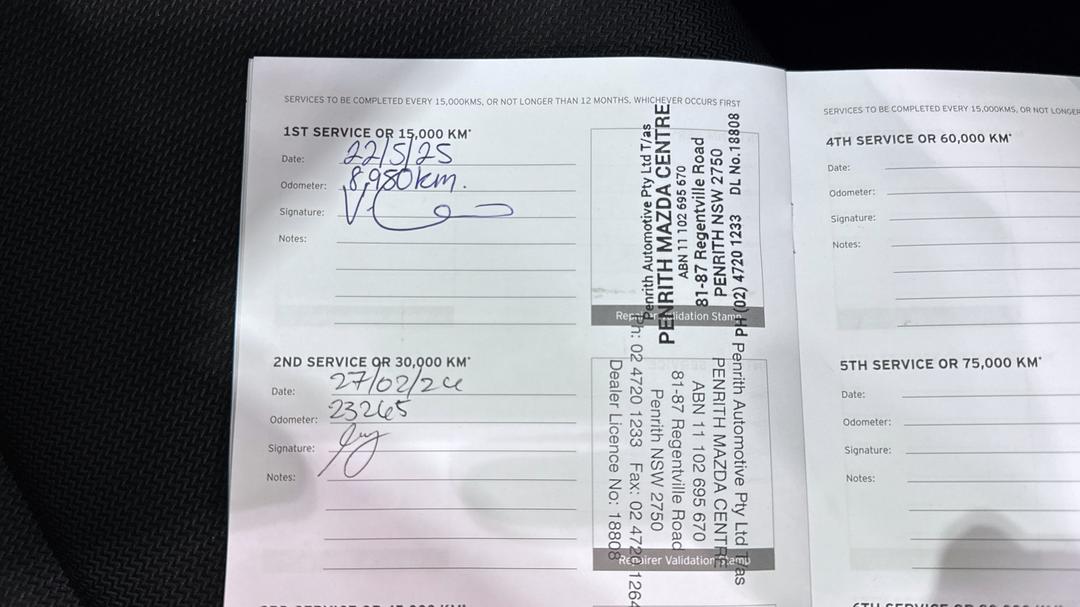 SERVICES TO BE COMPLETED EVERY 15,000KMS, OR NOT LONGER THAN 12 MONTHS, WHICHEVER OCCURS FIRST
1ST SERVICE OR 15,000 KM*
Date: 22/5/25
Odometer: 8,980km.
Signature:
Notes:
Penrith Automotive Pty Ltd T/as
PENRITH MAZDA CENTRE
ABN 11 102 695 670
81-87 Regentville Road
PENRITH NSW 2750
PH (02) 4720 1233 DL No.18808
Repairer Validation Stamp
2ND SERVICE OR 30,000 KM*
Date: 27/02/26
Odometer: 23265
Signature:
Notes:
Penrith Automotive Pty Ltd T/as
PENRITH MAZDA CENTRE
ABN 11 102 695 670
81-87 Regentville Road
Penrith NSW 2750
Ph: 02 4720 1233 Fax: 02 4720 1264
Dealer Licence No: 18808
Repairer Validation Stamp
SERVICES TO BE COMPLETED EVERY 15,000KMS, OR NOT LONGER
4TH SERVICE OR 60,000 KM*
Date:
Odometer:
Signature:
Notes:
5TH SERVICE OR 75,000 KM*
Date:
Odometer:
Signature:
Notes: